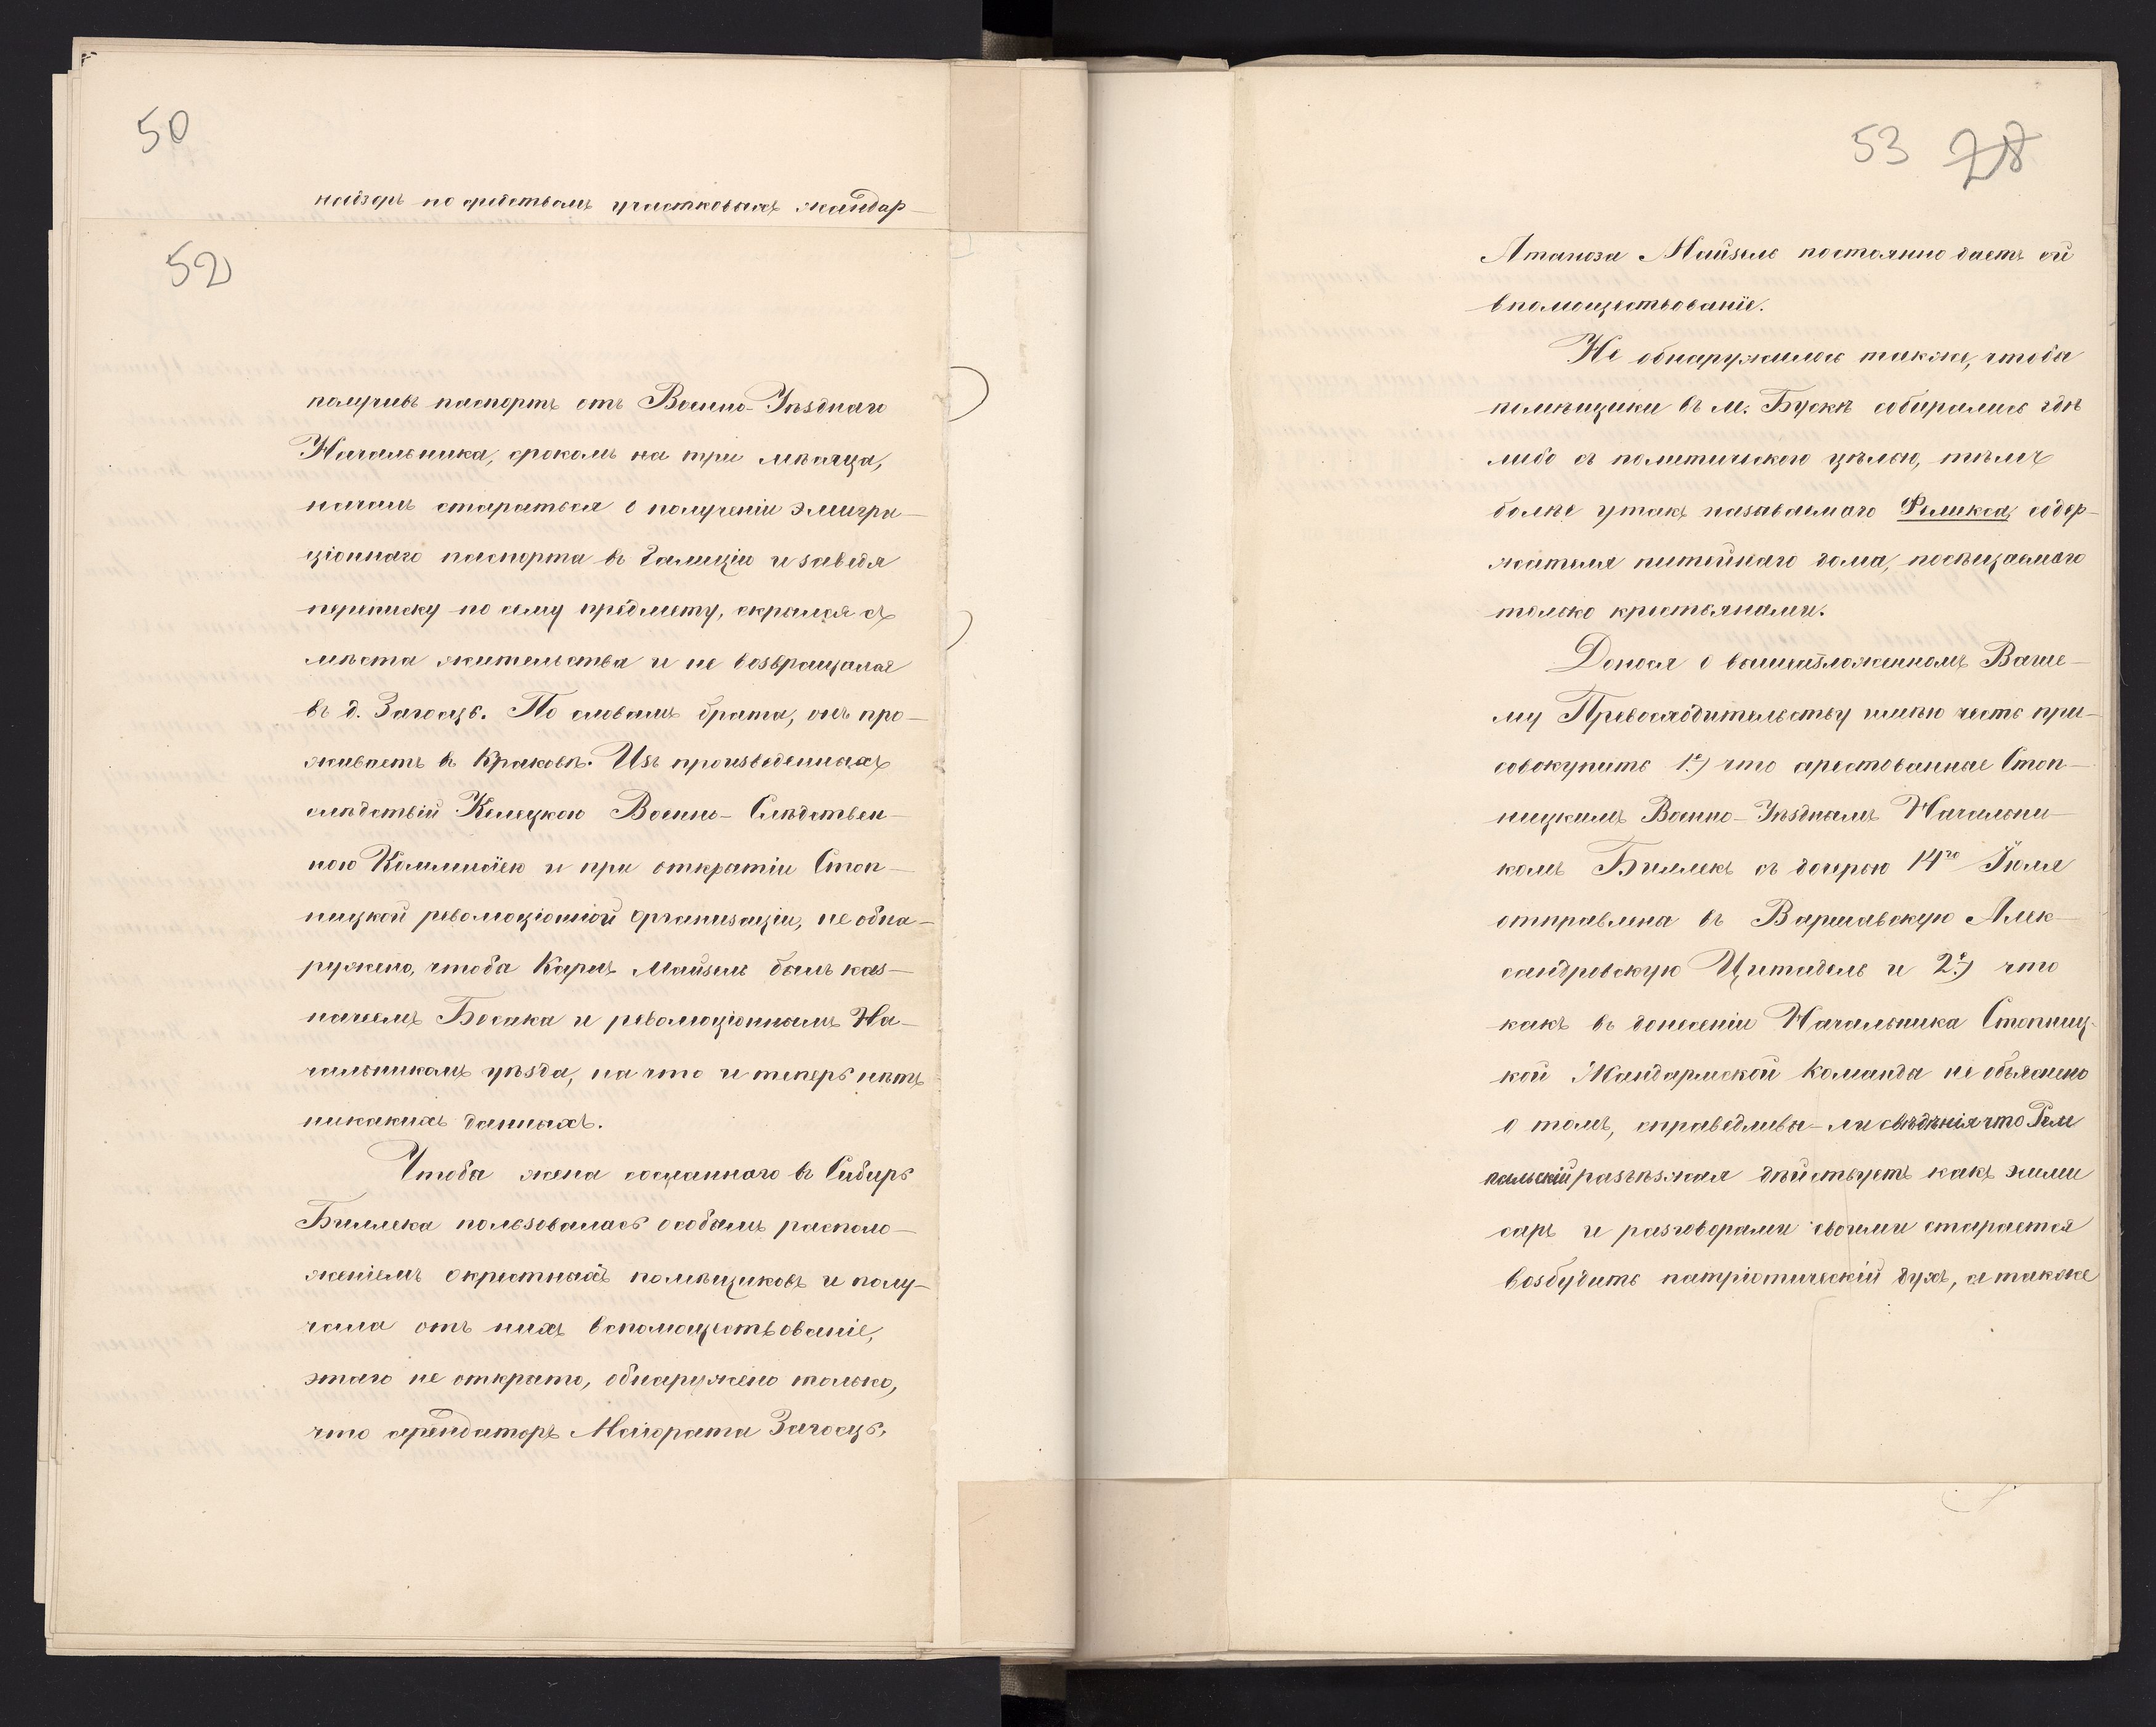 50
надзоръ по средствомъ участковыхъ жандар-
52
получивъ паспортъ отъ Военно-Уѣзднаго
Начальника, срокомъ на три мѣсяца,
началъ стараться о полученіи эмигра-
ціоннаго паспорта въ Галицію и заведя
переписку по сему предмету, скрылся съ
мѣста жительства и не возвращался
въ д. Загосць. По словамъ брата, онъ про-
живаетъ въ Краковѣ. Изъ произведенныхъ
слѣдствій Келецкою Военно-Слѣдствен-
ною Коммисіею и при открытіи Стоп-
ницкой революціонной организаціи, не обна-
ружено, чтобы Карлъ Майзель былъ каз-
начеемъ Босака и революціоннымъ На-
чальникомъ уѣзда, на что и теперь нѣтъ
никакихъ данныхъ.
Чтобы жена сосланнаго въ Сибирь
Биллека пользовалась особымъ располо-
женіемъ окрестныхъ помѣщиковъ и полу-
чала отъ нихъ вспомоществованіе,
этаго не открыто, обнаружено только,
что арендаторъ Маіората Загосць,
53 28
Атаноза Майзель постоянно даетъ ей
впомоществованіе.
Не обнаружилось также, чтобы
помѣщики въ м. Бускѣ собирались гдѣ
либо съ политическою цѣлью, тѣмъ
болѣе у такъ называемаго Феликса, содер-
жателя питейнаго дома, посѣщаемаго
только крестьянами.
Донося о вышеизложенномъ Ваше-
му Превосходительству имѣю честь при-
совокупить 1е) что арестованные Стоп-
ницкимъ Военно-Уѣзднымъ Начальни-
комъ Биллекъ съ дочерью 14го Іюля
отправлена въ Варшавскую Алек-
сандровскую Цитадель и 2е) что
какъ въ донесеніи Начальника Стопниц-
кой Жандармской команды не объяснено
о томъ, справедливы-ли свѣдѣнія что
разъѣзжая дѣйствуетъ какъ эмми
саръ и разговорами своими старается
возбудить патріотическій духъ, а также